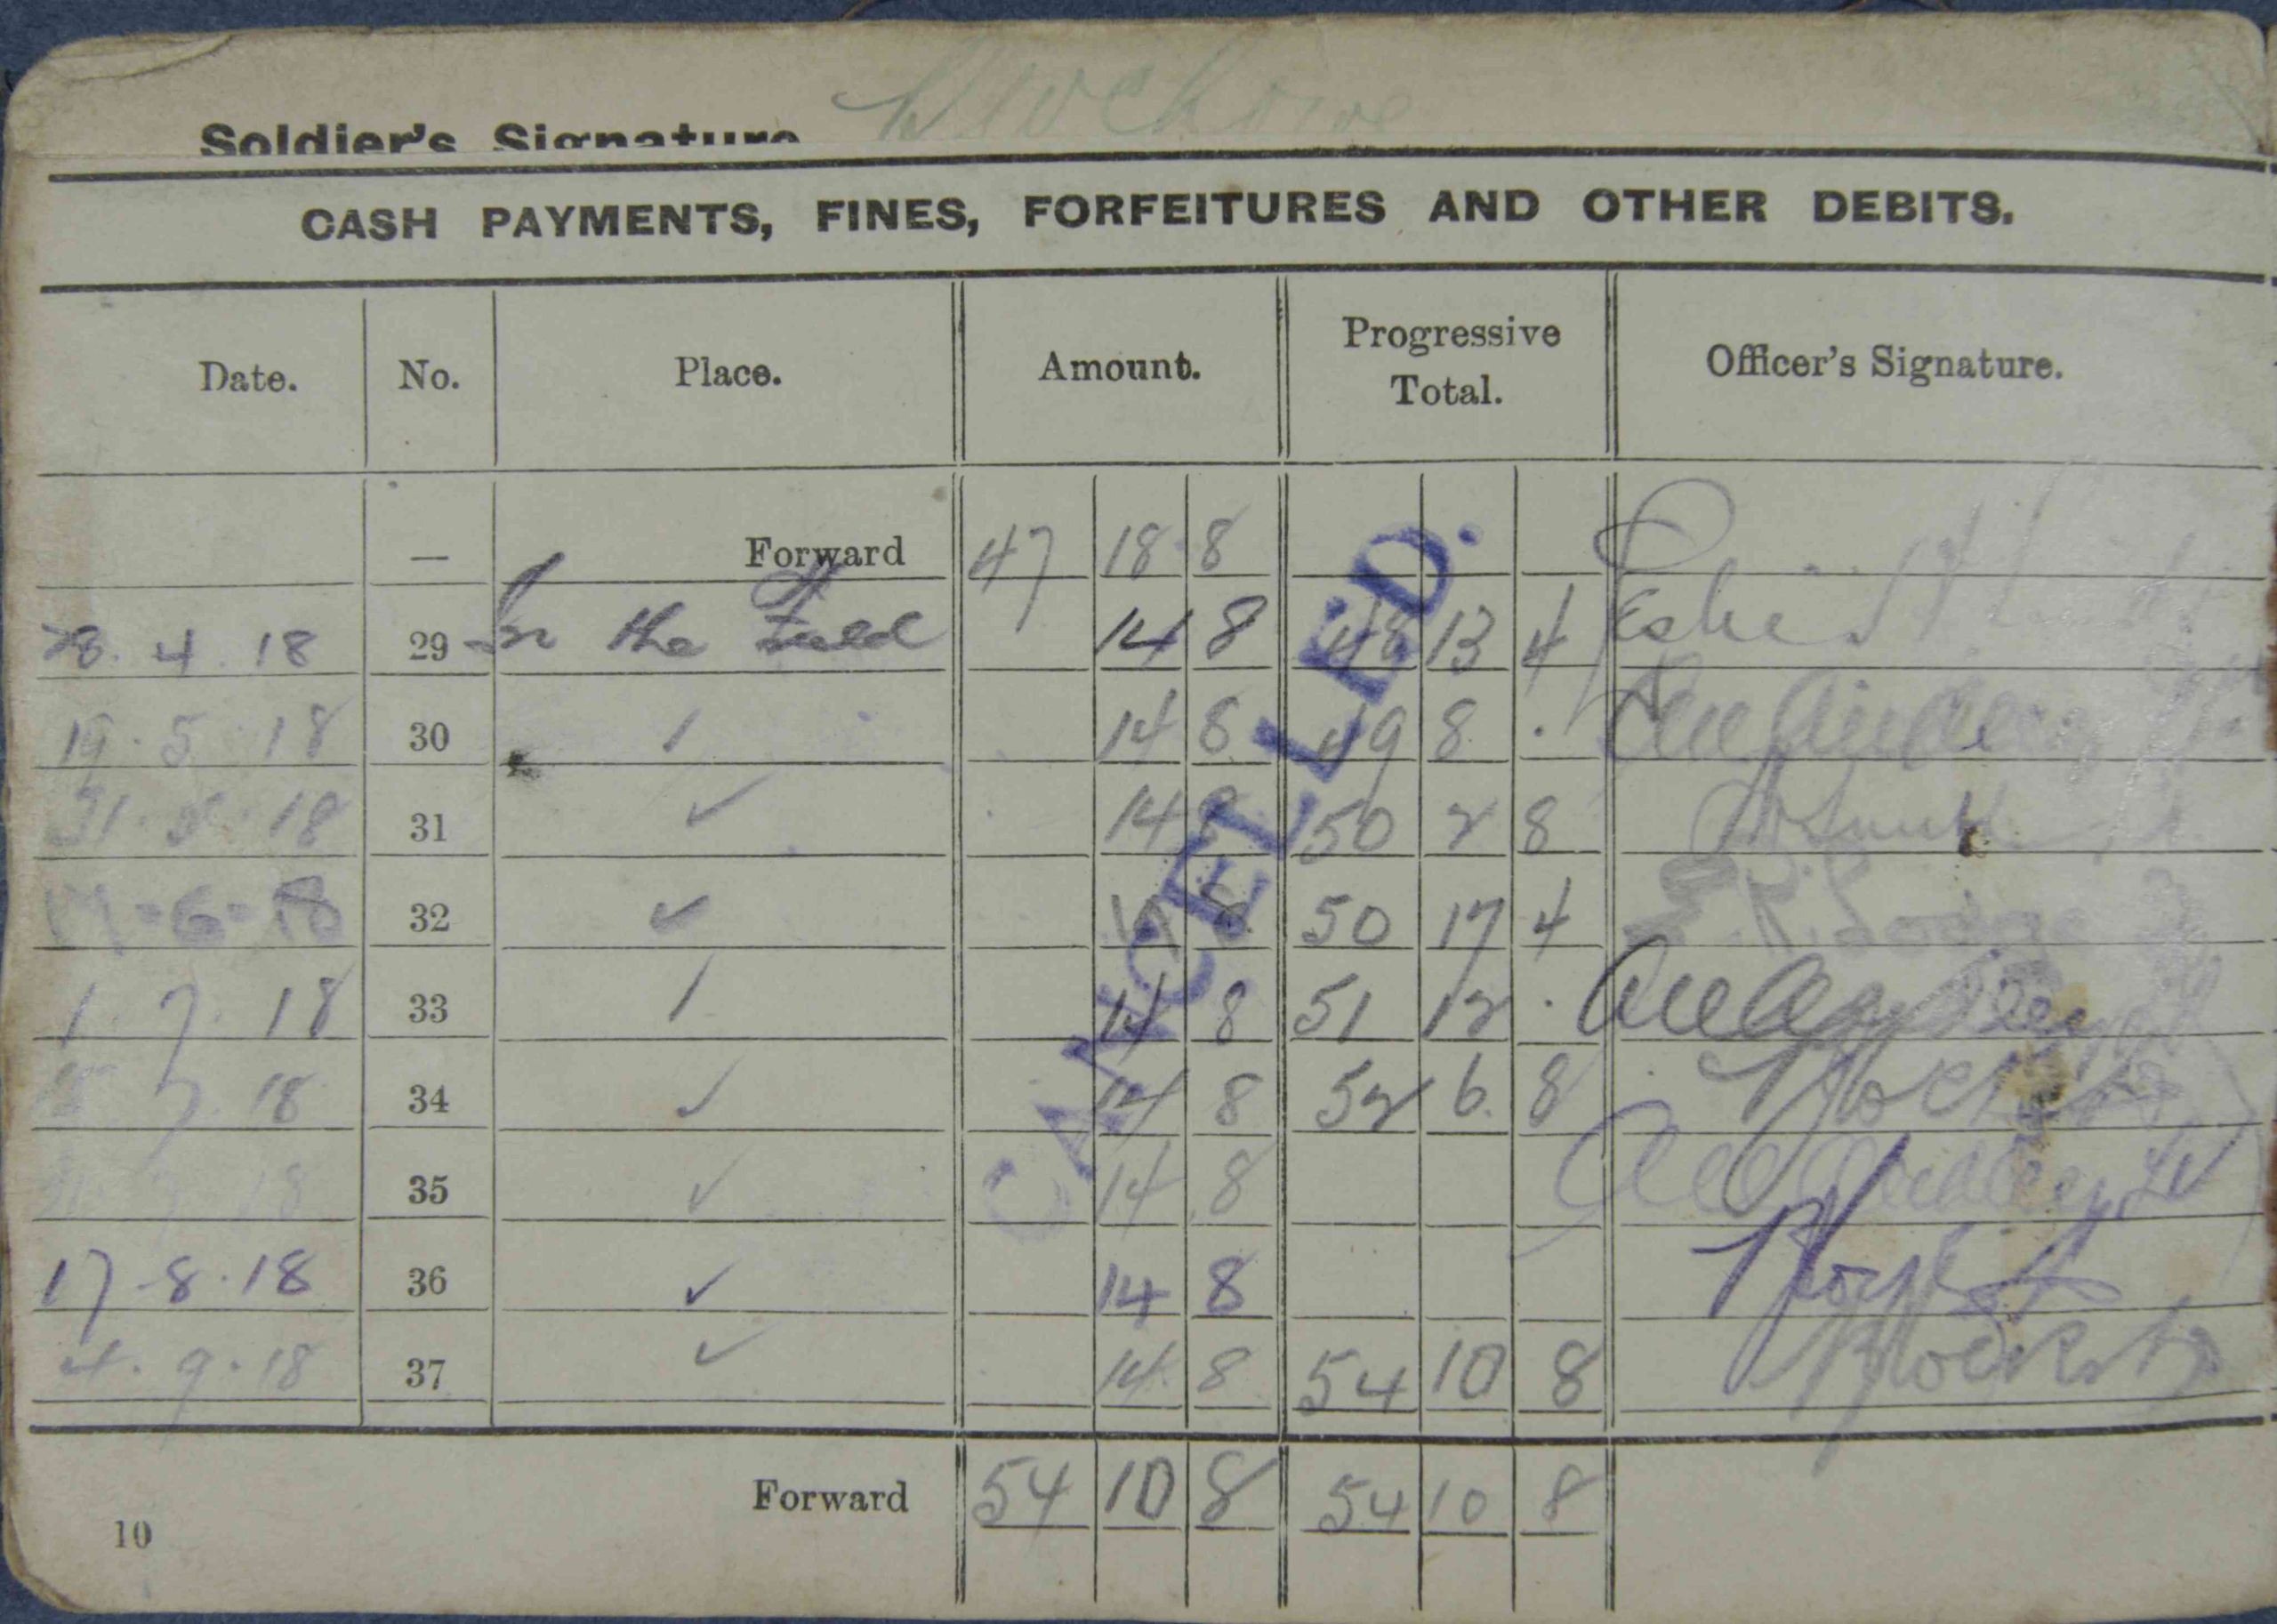 Soldier's Signature
CASH PAYMENTS, FINES, FORFEITURES AND OTHER DEBITS.
Date. No. Place. Amount. Progressive Total. Officer's Signature.
— Forward 47 18 8
28. 4. 18 29 In the Field 14 8 48 13 4
19. 5. 18 30 14 8 49 8 .
31. 5. 18 31 ✓ 14 8 50 2 8
6 - 18 32 ✓ 14 8 50 17 4
1. 7. 18 33 14 8 51 12 .
7. 18 34 ✓ 14 8 52 6. 8
18 35 ✓ 14 8
17 - 8. 18 36 ✓ 14 8
4. 9. 18 37 ✓ 14 8 54 10 8
CANCELLED.
Forward 54 10 8 54 10 8
10